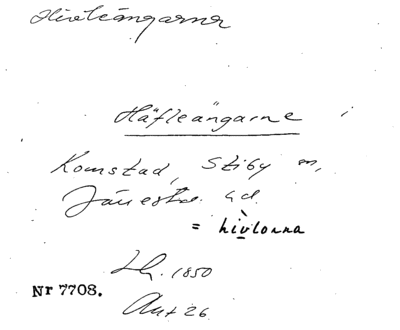 Hivleängarner
Häfleängarne
Komstad, Stiby sn,
Järrestad hd.
= hìvlonna
Lh. 1850
Nr 7708.
Akt 26